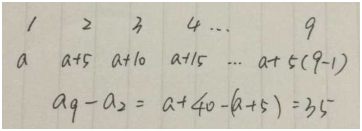 1 2 3 4 ... 9
a a+5 a+10 a+15 ... a+5(9-1)
a₉-a₂ = a+40-(a+5) = 35